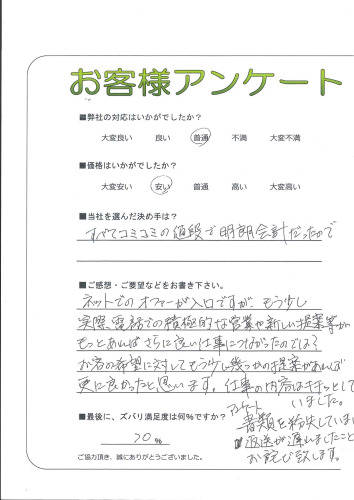 お客様アンケート
■弊社の対応はいかがでしたか？
大変良い 良い 普通 不満 大変不満
■価格はいかがでしたか？
大変安い 安い 普通 高い 大変高い
■当社を選んだ決め手は？
すべてコミコミの値段で明朗会計だったので
■ご感想・ご要望などをお書き下さい。
ネットでのオファーが入口ですが、もう少し
実際、電話での積極的な営業や新しい提案等が
もっとあればさらに良い仕事につながったのでは？
お客の希望に対してもう少し幾つかの提案があれば
更に良かったと思います。仕事の内容はキチッとして
いました。
■最後に、ズバリ満足度は何%ですか？
70 %
アンケート
書類を紛失していまし
返送が遅れましたこと
お詫び致します。
ご協力頂き、誠にありがとうございました。